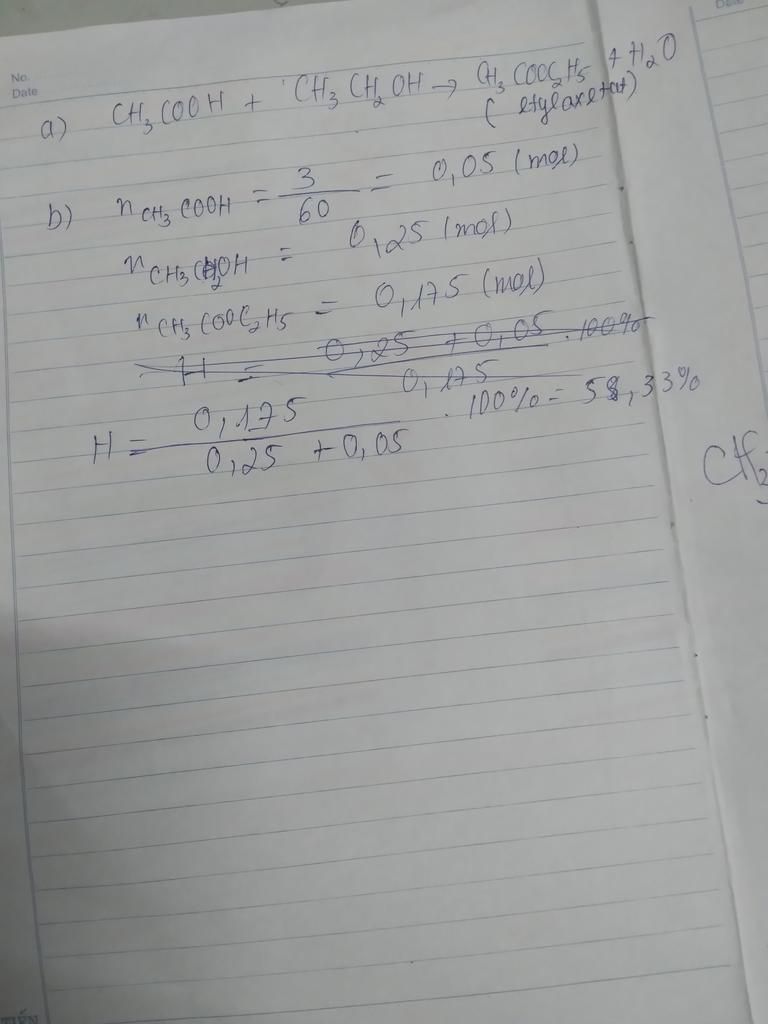 No.
Date
a) CH₃COOH + CH₃CH₂OH → CH₃COOC₂H₅ + H₂O
(etylaxetat)
b) nCH₃COOH = 3/60 = 0,05 (mol)
nCH₃CH₂OH = 0,25 (mol)
nCH₃COOC₂H₅ = 0,175 (mol)
H = (0,25 + 0,05)/0,175 . 100%
H = 0,175/(0,25 + 0,05) . 100% = 58,33%
CH₃
Date
TIẾN